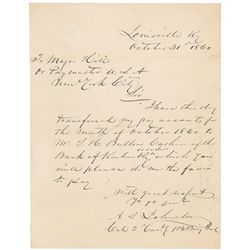 Louisville Ky
October 31st 1860
To Major Hill
Paymaster U.S.A
New York City
Sir
I have this day
transferred my pay accounts for
the Month of October 1860 to
Mr. Cashier of the
Bank of Kentucky which you
will please do me the favor
to pay
With great respect
Yr ob servt
A S Johnston
Col 2 Cavy Bt Brig Genl